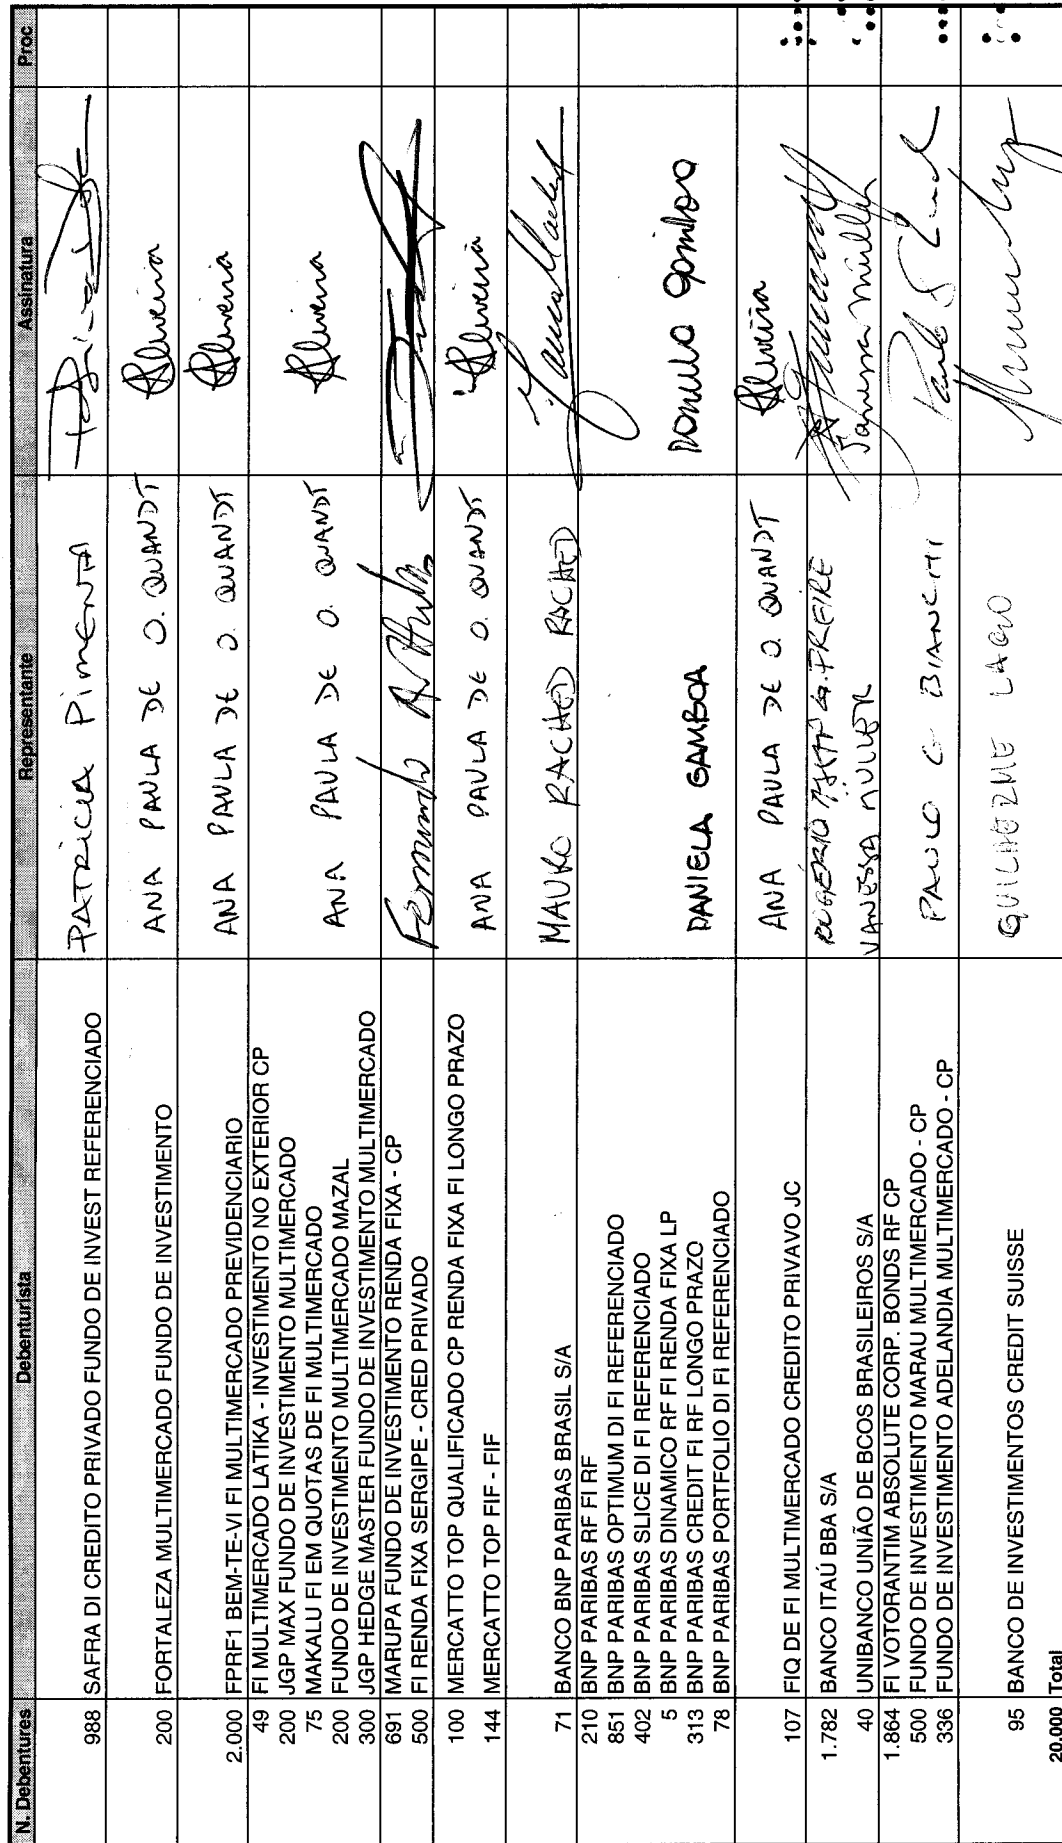 N. Debentures Debenturista Representante Assinatura Proc
988 SAFRA DI CREDITO PRIVADO FUNDO DE INVEST REFERENCIADO PATRICIA PIMENTA
200 FORTALEZA MULTIMERCADO FUNDO DE INVESTIMENTO ANA PAULA DE O. QUANDT Oliveira
2.000 FPRF1 BEM-TE-VI FI MULTIMERCADO PREVIDENCIARIO ANA PAULA DE O. QUANDT Oliveira
49 FI MULTIMERCADO LATIKA - INVESTIMENTO NO EXTERIOR CP
200 JGP MAX FUNDO DE INVESTIMENTO MULTIMERCADO
75 MAKALU FI EM QUOTAS DE FI MULTIMERCADO ANA PAULA DE O. QUANDT Oliveira
200 FUNDO DE INVESTIMENTO MULTIMERCADO MAZAL
300 JGP HEDGE MASTER FUNDO DE INVESTIMENTO MULTIMERCADO
691 MARUPA FUNDO DE INVESTIMENTO RENDA FIXA - CP Fernando
500 FI RENDA FIXA SERGIPE - CRED PRIVADO
100 MERCATTO TOP QUALIFICADO CP RENDA FIXA FI LONGO PRAZO ANA PAULA DE O. QUANDT Oliveira
144 MERCATTO TOP FIF - FIF
71 BANCO BNP PARIBAS BRASIL S/A MAURO RACHED RACHED
210 BNP PARIBAS RF FI RF
851 BNP PARIBAS OPTIMUM DI FI REFERENCIADO
402 BNP PARIBAS SLICE DI FI REFERENCIADO
5 BNP PARIBAS DINAMICO RF FI RENDA FIXA LP
313 BNP PARIBAS CREDIT FI RF LONGO PRAZO DANIELA GAMBOA
78 BNP PARIBAS PORTFOLIO DI FI REFERENCIADO
107 FIQ DE FI MULTIMERCADO CREDITO PRIVAVO JC ANA PAULA DE O. QUANDT Oliveira
1.782 BANCO ITAÚ BBA S/A ROGÉRIO FREIRE
40 UNIBANCO UNIÃO DE BCOS BRASILEIROS S/A VANESSA MÜLLER Vanessa Müller
1.864 FI VOTORANTIM ABSOLUTE CORP. BONDS RF CP
500 FUNDO DE INVESTIMENTO MARAU MULTIMERCADO - CP PAULO G BIANCHI Paulo
336 FUNDO DE INVESTIMENTO ADELANDIA MULTIMERCADO - CP
95 BANCO DE INVESTIMENTOS CREDIT SUISSE GUILHERME LAGO
20.000 Total